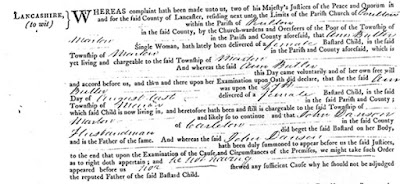 LANCASHIRE, (to wit) } WHEREAS complaint hath been made unto us, two of his Majesty's Justices of the Peace and Quorum in
and for the said County of Lancaster, residing next unto the Limits of the Parish Church of
within the Parish of
in the said County, by the Church-wardens and Overseers of the Poor of the Township of
Marton in the Parish and County aforesaid, that Ann Butler
Single Woman, hath lately been delivered of a female Bastard Child, in the
Township of Marton in the Parish and County aforesaid, which is
yet living and chargeable to the said Township of Marton
And whereas the said Ann Butler
this Day came voluntarily and of her own free will
and accord before us, and then and there upon her Examination upon Oath did declare, that she the said Ann
Butler was on the
Day of August last delivered of a female Bastard Child, in the said
Township of Marton in the said Parish and County;
which said Child is now living in, and heretofore hath been and still is chargeable to the said Township of
Marton and likely so to continue and that John Danson
of Carleton in the County
Husbandman did beget the said Bastard on her Body,
and is the Father of the same. And whereas the said John Danson
hath been duly summoned to appear before us the said Justices,
to the end that upon the Examination of the Cause and Circumstances of the Premises, we might take such Order
as to right doth appertain; and he not having
appeared before us nor shewed any sufficient Cause why he should not be adjudged
the reputed Father of the said Bastard Child.